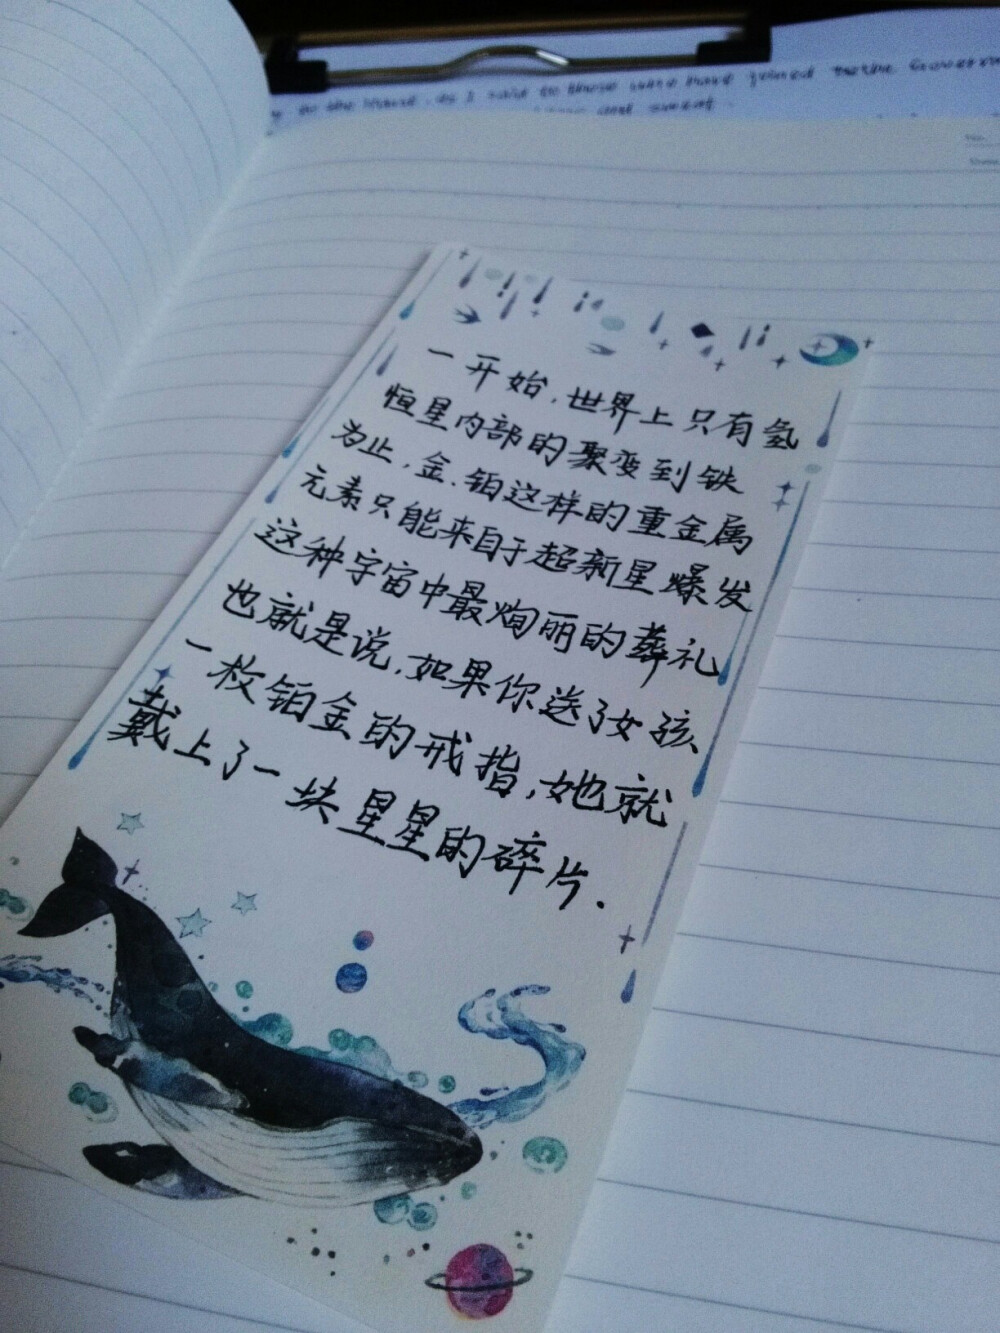 to the House, as I said to those who have joined the Govern
and sweat.
No.
Date
一开始,世界上只有氢
恒星内部的聚变到铁
为止,金.铂这样的重金属
元素只能来自于超新星爆发
这种宇宙中最炯丽的葬礼
也就是说,如果你送了女孩
一枚铂金的戒指,她就
戴上了一块星星的碎片.